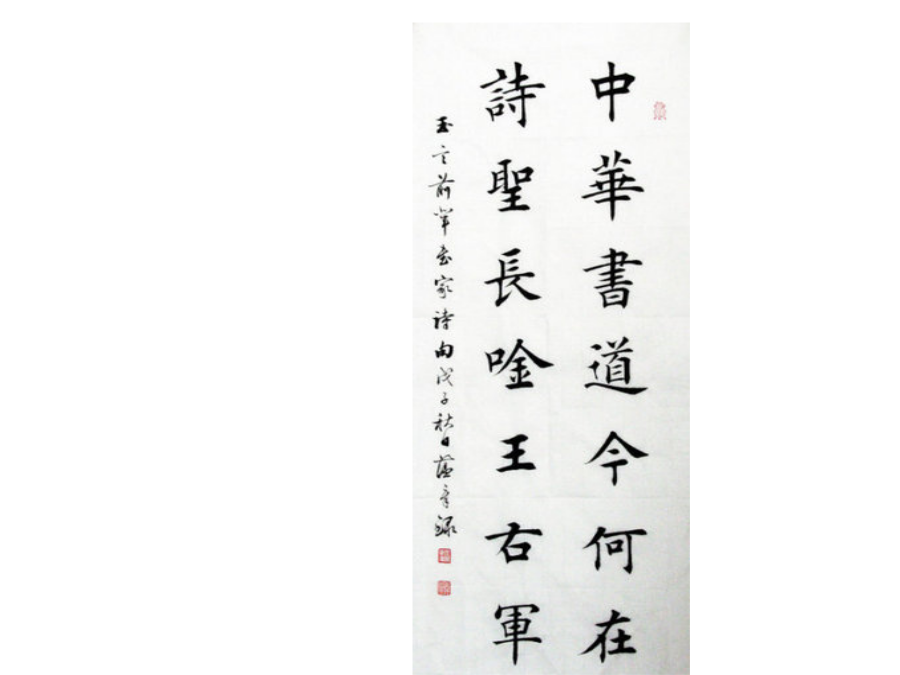 中華書道今何在
詩聖長唫王右軍
玉言前輩書家詩句戊子秋日錄